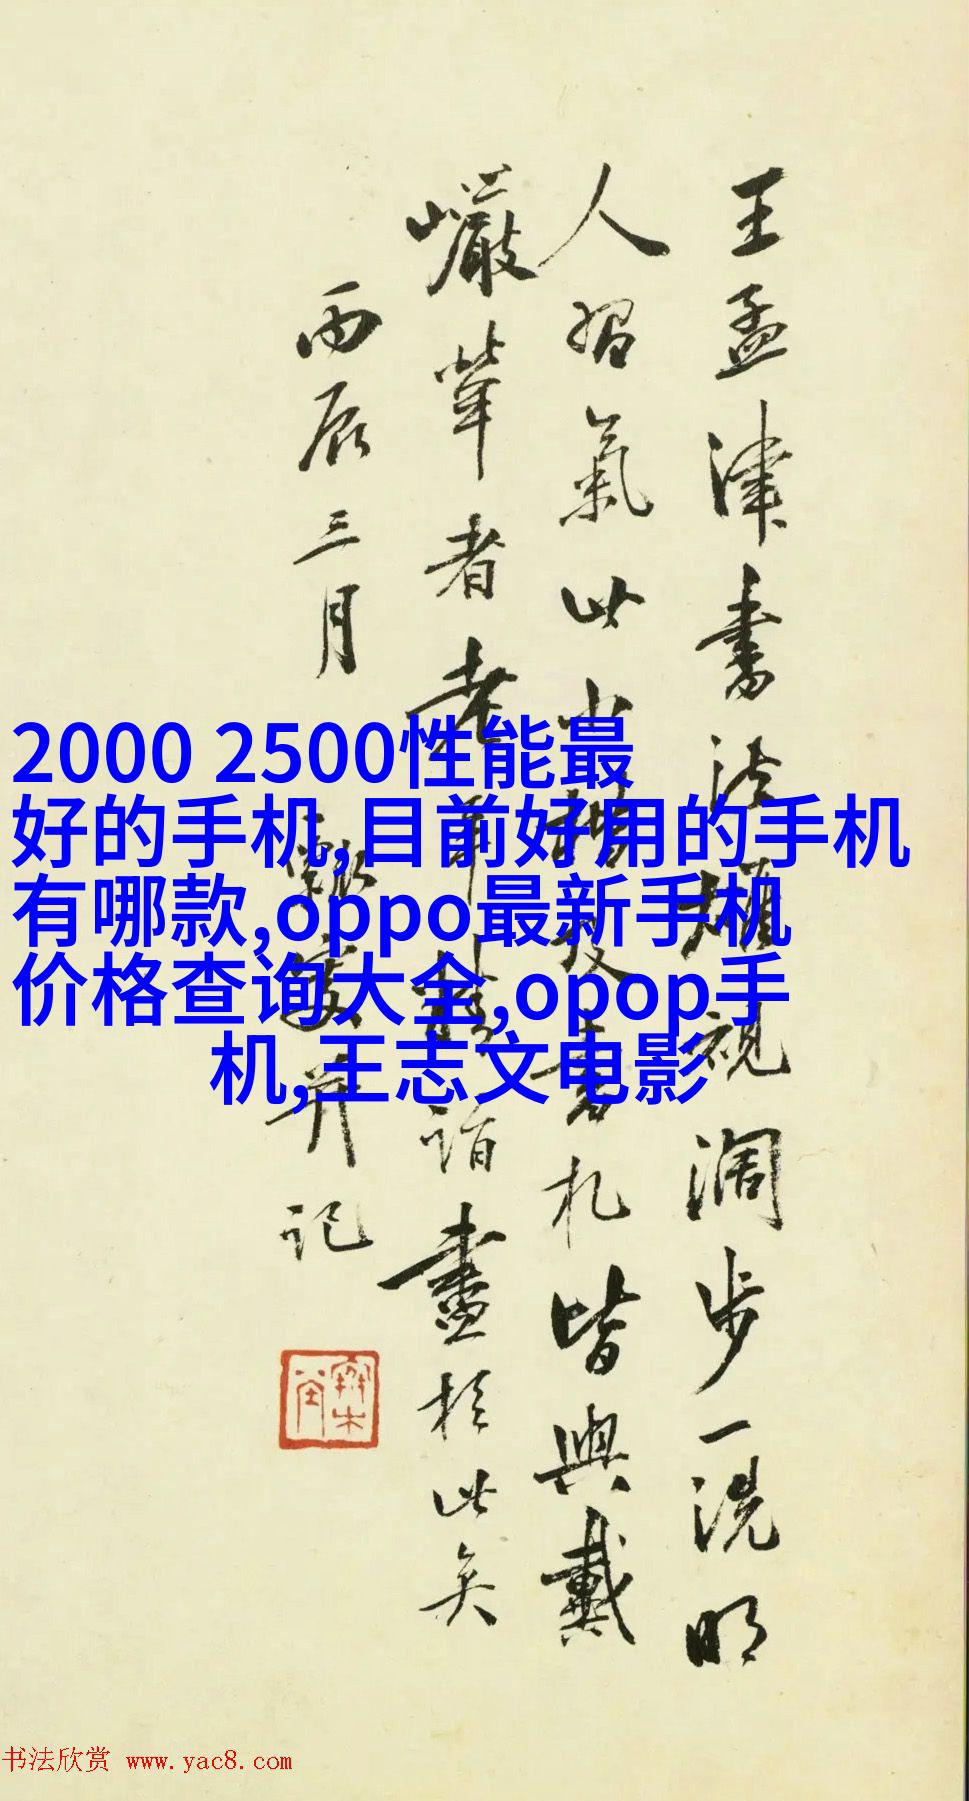 王孟津書法視闊步一洗明
人習氣此小楷及書札皆與戴
巖犖者老年精詣盡於此矣
丙辰三月并記
2000 2500性能最
好的手机,目前好用的手机
有哪款,oppo最新手机
价格查询大全,opop手
机,王志文电影
书法欣赏 www.yac8.com